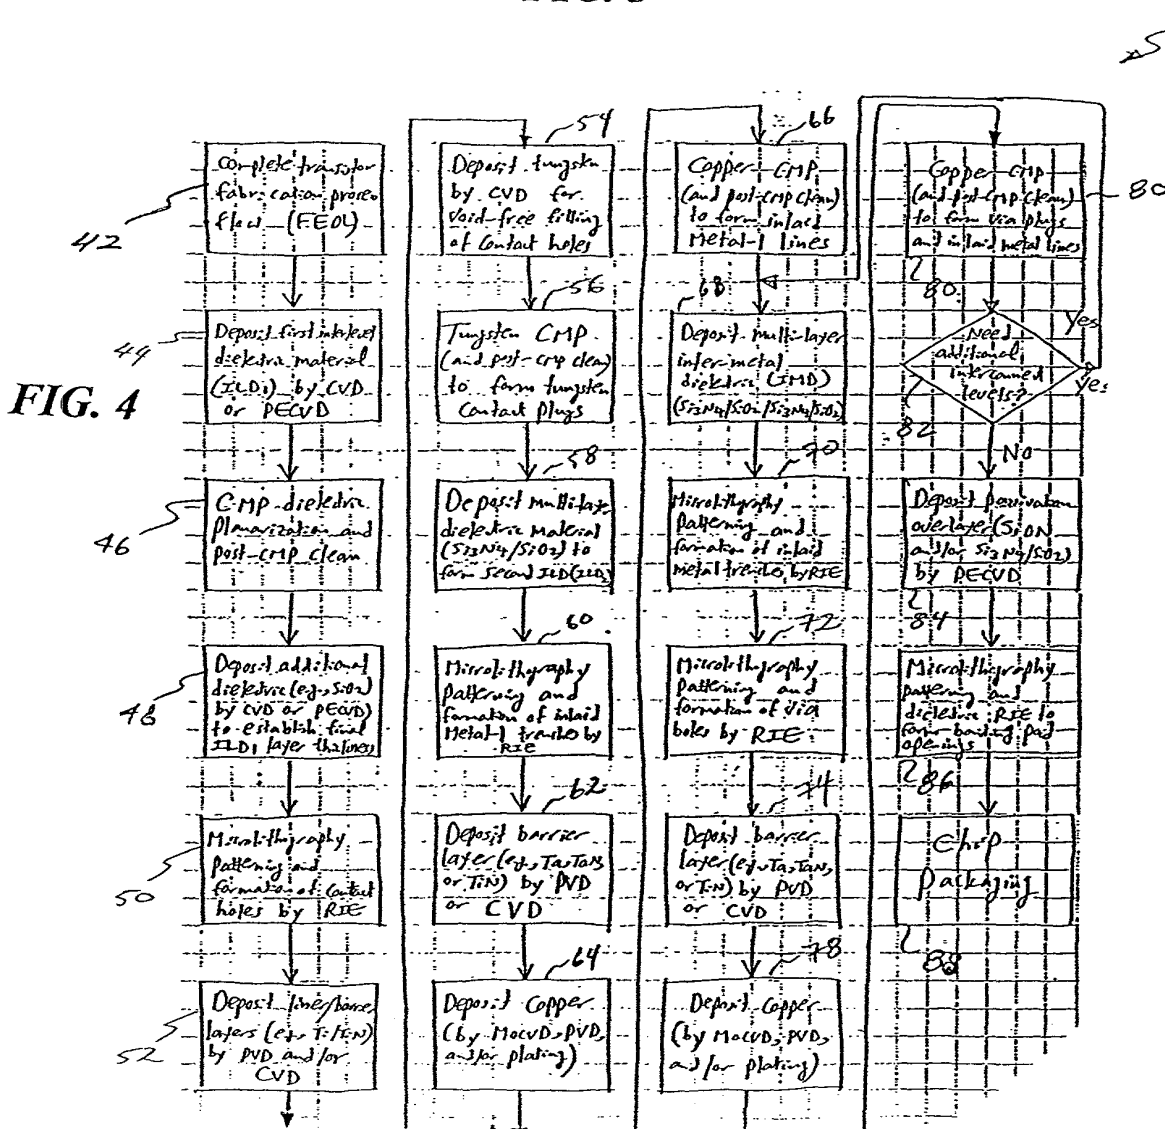 42
Complete transistor
fabrication process
flow (FEOL)
44
Deposit first interlevel
dielectric material
(ILD1) by CVD
or PECVD
FIG. 4
46
CMP dielectric
planarization and
post-CMP clean
48
Deposit additional
dielectric (e.g., SiO2)
by CVD or PECVD)
to establish final
ILD1 layer thickness
50
Microlithography
patterning and
formation of contact
holes by RIE
52
Deposit liner/barrier
layers (e.g., Ti/TiN)
by PVD and/or
CVD
54
Deposit tungsten
by CVD for
void-free filling
of contact holes
56
Tungsten CMP
(and post-cmp clean)
to form tungsten
Contact plugs
58
Deposit multilayer
dielectric material
(Si3N4/SiO2) to
form second ILD (ILD2)
60
Microlithography
patterning and
formation of inlaid
Metal-1 trenches by
RIE
62
Deposit barrier
layer (e.g., Ta, TaN,
or TiN) by PVD
or CVD
64
Deposit Copper
(by MOCVD, PVD,
and/or plating)
66
Copper CMP
(and post-CMP clean)
to form inlaid
Metal-1 lines
68
Deposit multi-layer
inter-metal
dielectric (IMD)
(Si3N4/SiO2/Si3N4/SiO2)
70
Microlithography
patterning and
formation of inlaid
metal trenches by RIE
72
Microlithography
patterning and
formation of via
holes by RIE
74
Deposit barrier
layer (e.g., Ta, TaN,
or TiN) by PVD
or CVD
78
Deposit Copper
(by MOCVD, PVD,
and/or plating)
80
Copper CMP
(and post-CMP clean)
to form via plugs
and inlaid metal lines
80
Need
additional
interconnect
levels?
Yes
Yes
82
No
Deposit passivation
overlayer (SiON
and/or Si3N4/SiO2)
by PECVD
84
Microlithography
patterning and
dielectric RIE to
form bonding pad
openings
86
Chip
Packaging
88